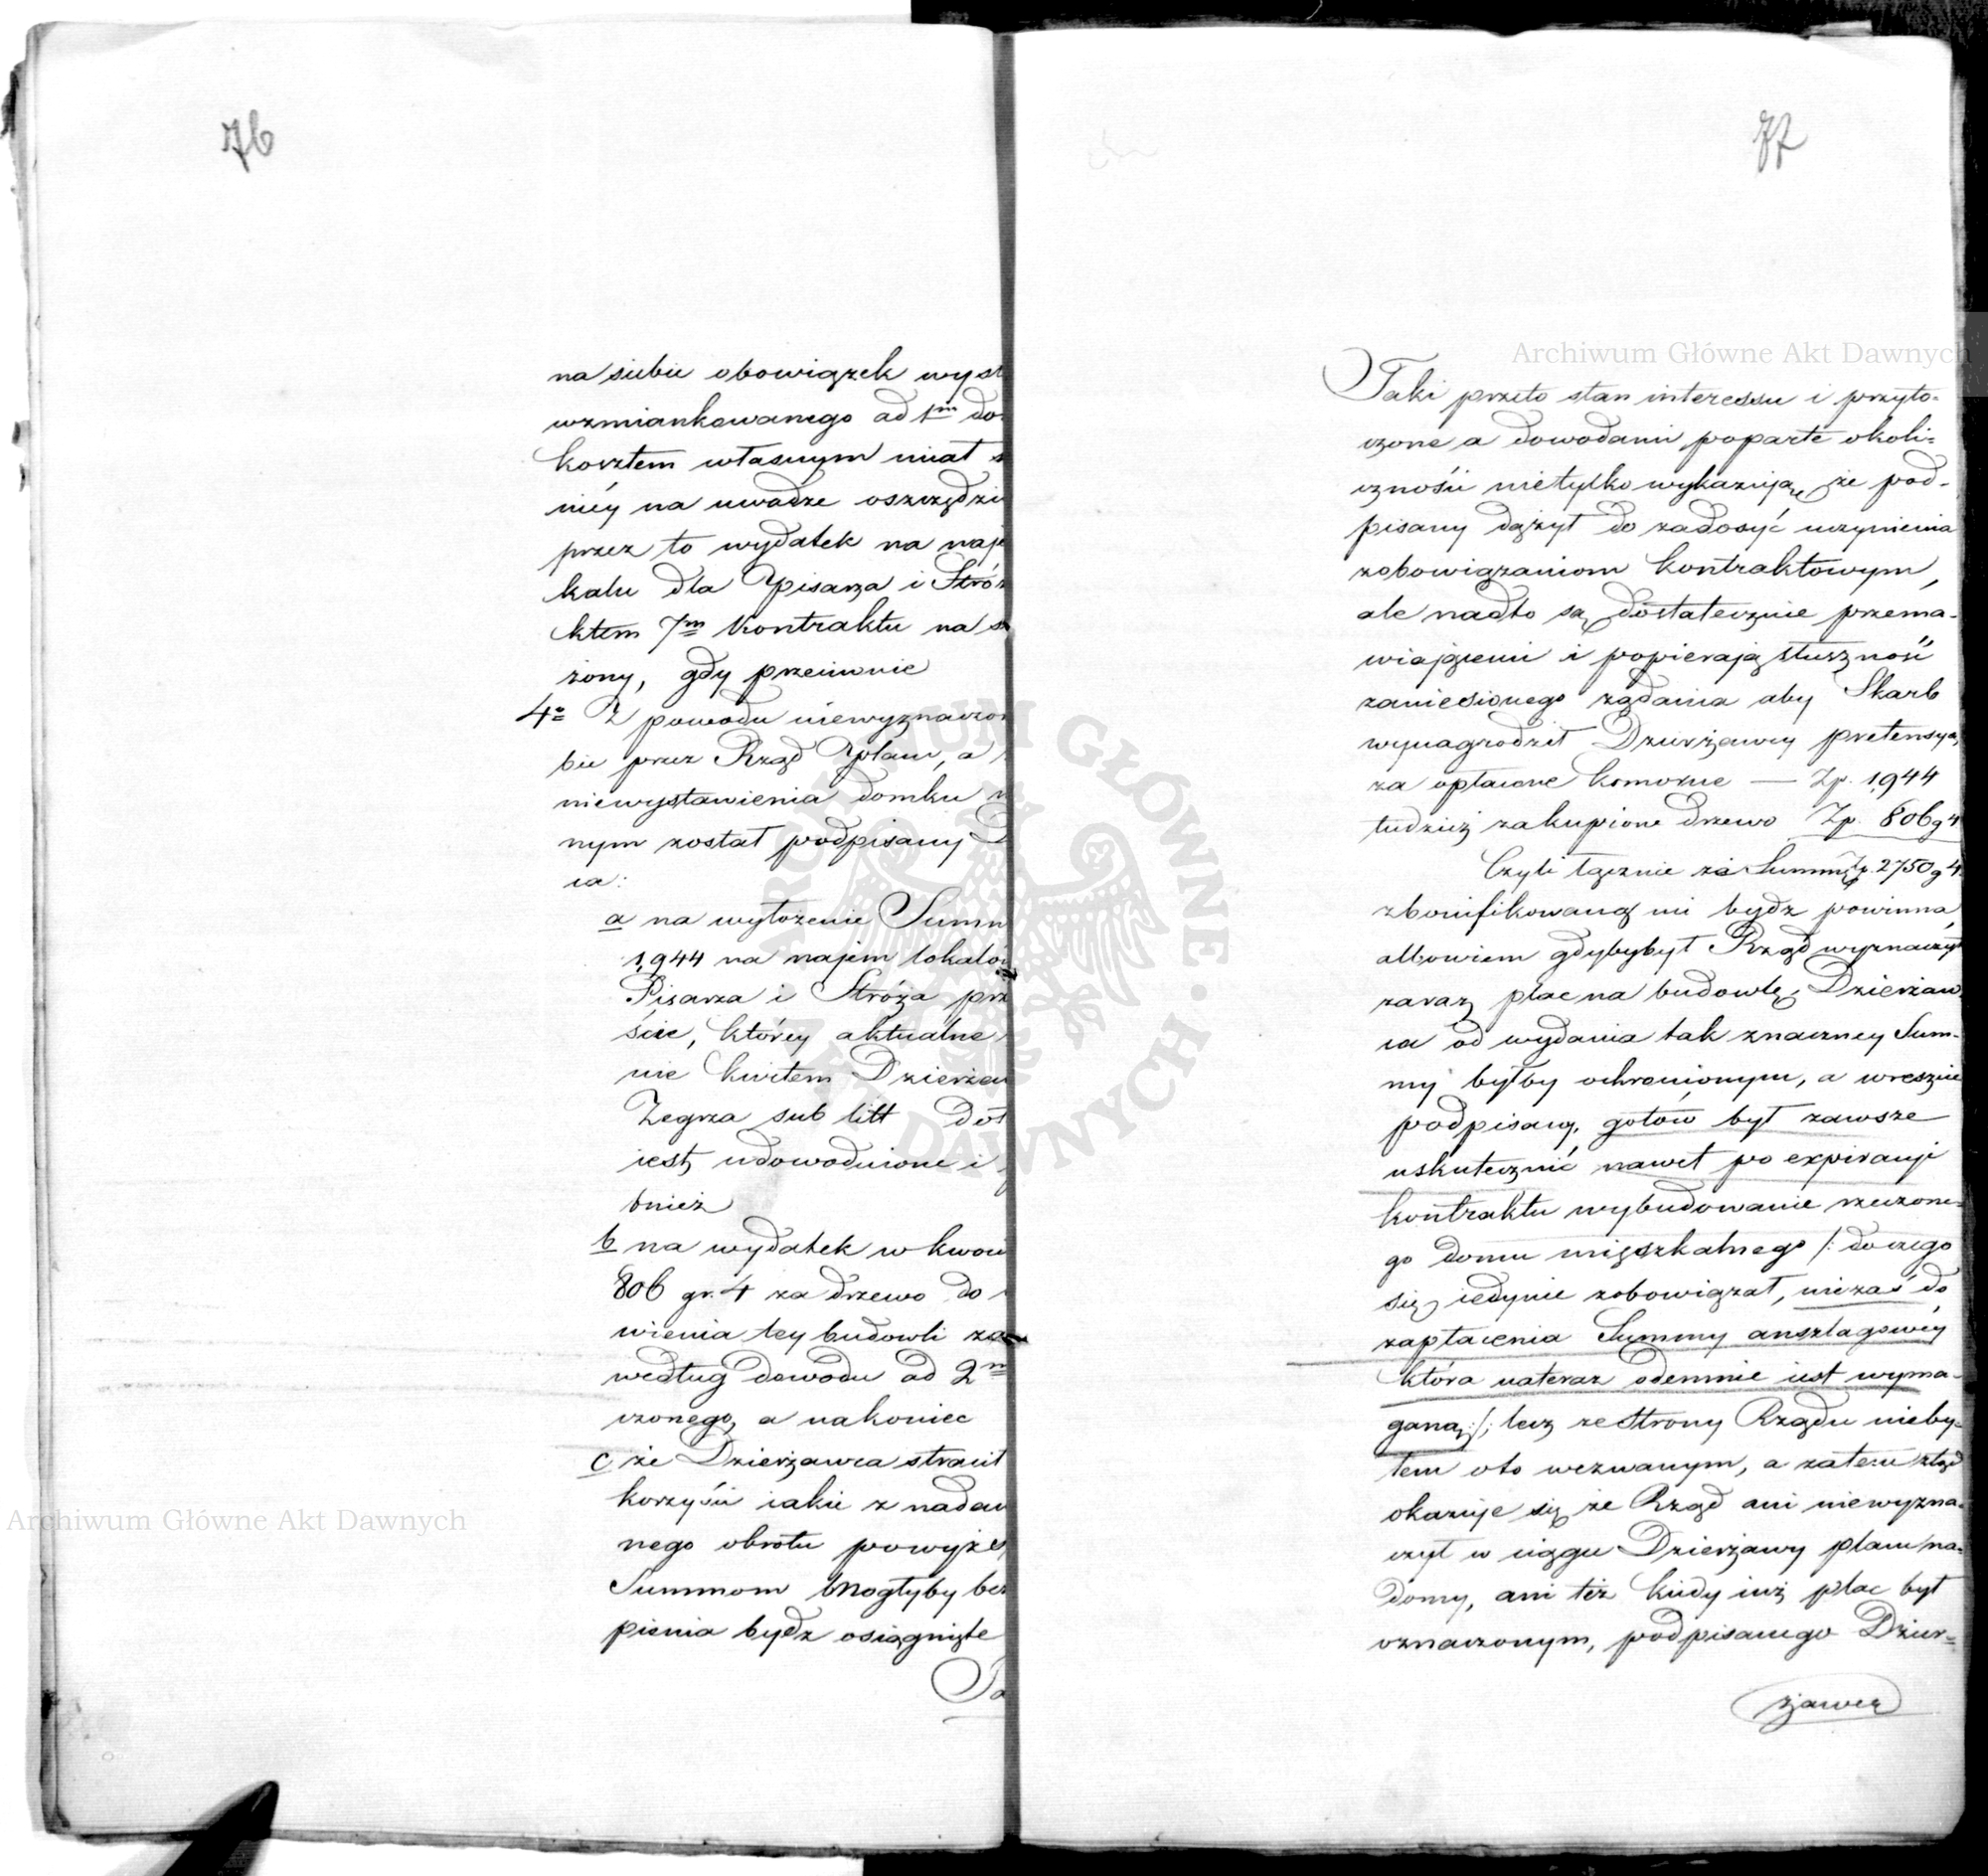 76
na siebie obowiązek wyst
wzmiankowanego ad 1m do
kosztem własnym miał
niéy na uwadze oszczędzi
przez to wydatek na naje
kalu dla Pisarza i Stróż
ktem 7m Kontraktu na
żony, gdy przeciwnie
4o Z powodu niewyznaczon
bie przez Rząd placu, a
niewystawienia domku
nym został podpisany D
ca:
a na wyłożenie Summ
1,944 na najem lokalów
Pisarza i Stróża prz
ście, którey aktualne
nie kwitem Dzierżaw
Zegrza sub litt dół
iest udowodnione i
tnież
b na wydatek w kwoci
806 gr. 4 za drzewo do
wienia tey budowli za
według dowodu ad 2m
czonego, a nakoniec
c że Dzierżawca stracił
korzyści iakie z nadau
nego obrotu powyższ
Summom mogłyby bez
pienia bydz osiągnięte
Ta
77
Taki przeto stan interessu i przyto=
czone a dowodami poparte okoli=
czności nietylko wykazują, że pod=
pisany dążył do zadosyć uczynienia
zobowiązaniom kontraktowym,
ale nadto są dostatecznie przema=
wiającemi i popierają słuszność
zaniesionego żądania aby Skarb
wynagrodził Dzierżawcy pretensyą
za opłacone komorne — Zp. 1,944
tudzież zakupione drzewo Zp. 806 g 4
Czyli łącznie za Summę Zp. 2750 g 4.
zbonifikowaną mi bydz powinna,
albowiem gdybybył Rząd wyznaczył
zaraz plac na budowlę, Dzierżaw
ca od wydania tak znaczney Sum=
my byłby ochronionym, a wreszcie
podpisany, gotów był zawsze
uskutecznić nawet po expiracyi
kontraktu wybudowanie rzeczone=
go domu mięszkalnego /: do czego
się iedynie zobowiązał, niezaś do
zapłacenia Summy anszlagowéy
która nateraz odemnie iest wyma=
ganą :/; lecz ze strony Rządu nieby=
łem oto wezwanym, a zatem ztąd
okazuje się że Rząd ani niewyzna=
czył w ciągu Dzierżawy placu na=
domy, ani też kiedy iuż plac był
oznaczonym, podpisanego Dzier=
żawcę
Archiwum Główne Akt Dawnych
Archiwum Główne Akt Dawnych
ARCHIWUM GŁÓWNE AKT DAWNYCH